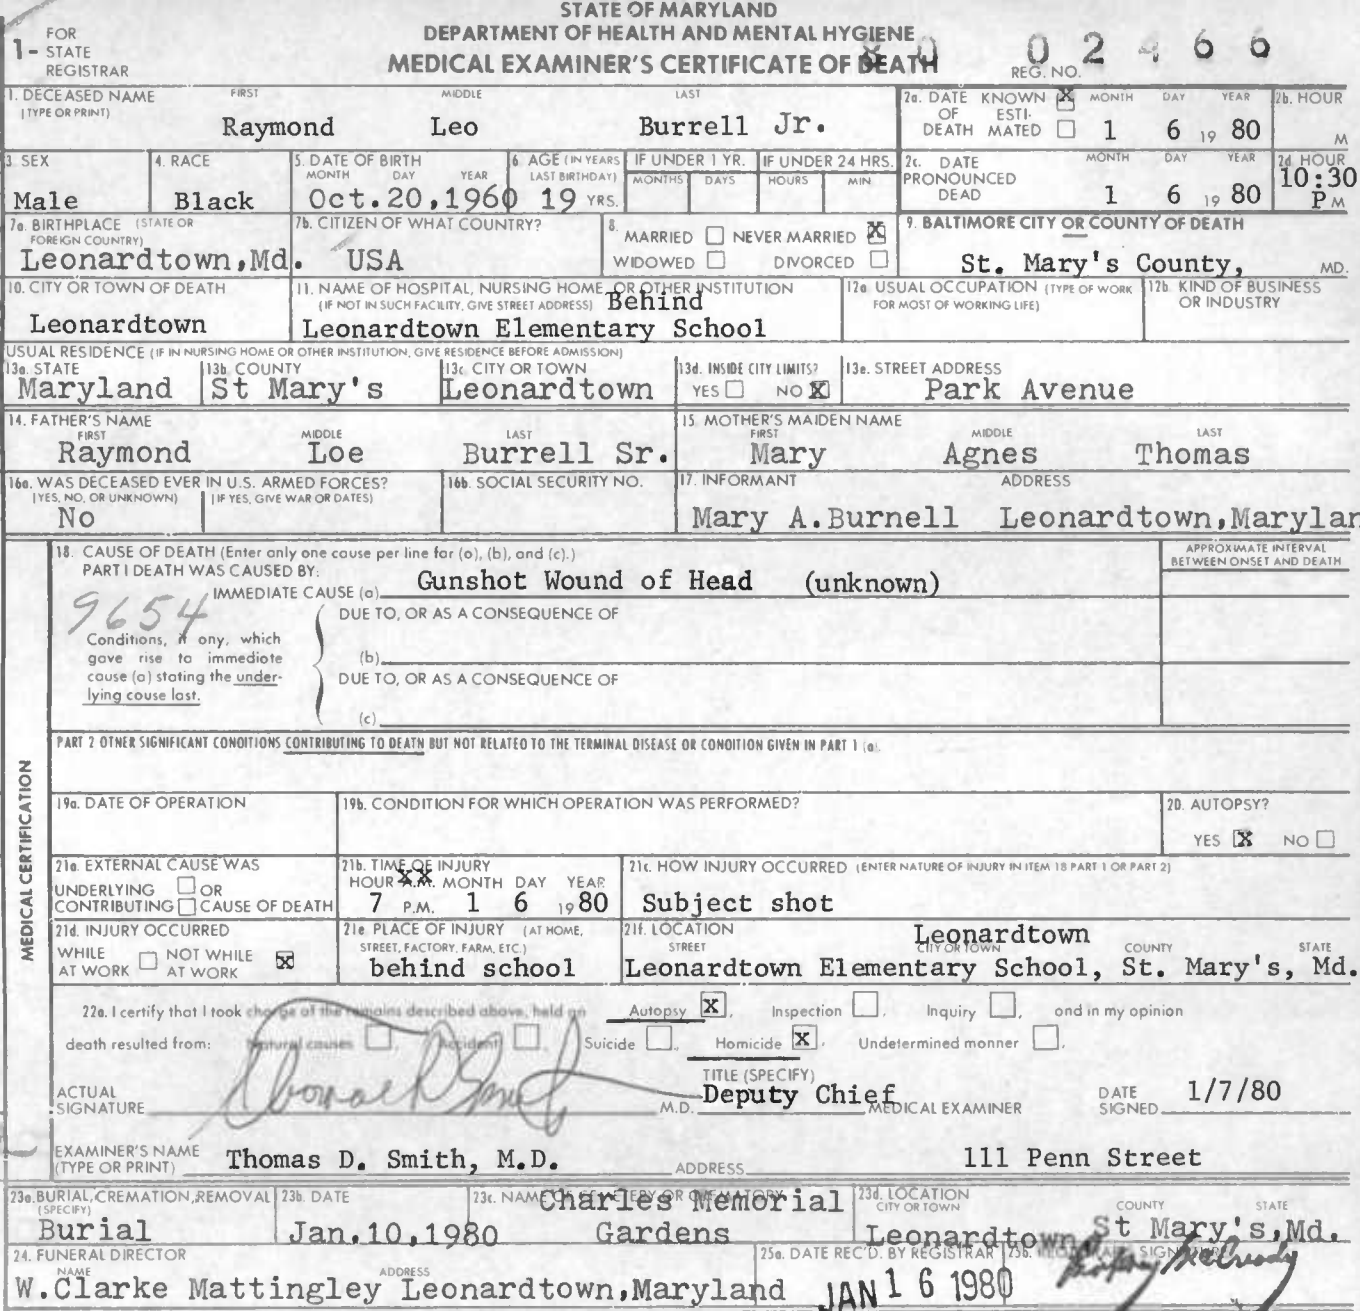 STATE OF MARYLAND
DEPARTMENT OF HEALTH AND MENTAL HYGIENE
MEDICAL EXAMINER'S CERTIFICATE OF DEATH
1- FOR STATE REGISTRAR
REG. NO. 80 02466
1. DECEASED NAME (TYPE OR PRINT) FIRST MIDDLE LAST
Raymond Leo Burrell Jr.
2a. DATE OF DEATH KNOWN X ESTIMATED MONTH DAY YEAR
1 6 1980
2b. HOUR M
3. SEX
Male
4. RACE
Black
5. DATE OF BIRTH MONTH DAY YEAR
Oct.20,1960
6. AGE (IN YEARS LAST BIRTHDAY)
19 YRS.
IF UNDER 1 YR. MONTHS DAYS
IF UNDER 24 HRS. HOURS MIN
2c. DATE PRONOUNCED DEAD MONTH DAY YEAR
1 6 1980
2d HOUR
10:30 P M
7a. BIRTHPLACE (STATE OR FOREIGN COUNTRY)
Leonardtown,Md.
7b. CITIZEN OF WHAT COUNTRY?
USA
8. MARRIED NEVER MARRIED X
WIDOWED DIVORCED
9. BALTIMORE CITY OR COUNTY OF DEATH
St. Mary's County, MD.
10. CITY OR TOWN OF DEATH
Leonardtown
11. NAME OF HOSPITAL, NURSING HOME, OR OTHER INSTITUTION
(IF NOT IN SUCH FACILITY, GIVE STREET ADDRESS) Behind
Leonardtown Elementary School
12a. USUAL OCCUPATION (TYPE OF WORK FOR MOST OF WORKING LIFE)
12b. KIND OF BUSINESS OR INDUSTRY
USUAL RESIDENCE (IF IN NURSING HOME OR OTHER INSTITUTION, GIVE RESIDENCE BEFORE ADMISSION)
13a. STATE
Maryland
13b. COUNTY
St Mary's
13c. CITY OR TOWN
Leonardtown
13d. INSIDE CITY LIMITS?
YES NO X
13e. STREET ADDRESS
Park Avenue
14. FATHER'S NAME
FIRST MIDDLE LAST
Raymond Loe Burrell Sr.
15. MOTHER'S MAIDEN NAME
FIRST MIDDLE LAST
Mary Agnes Thomas
16a. WAS DECEASED EVER IN U.S. ARMED FORCES?
(YES, NO, OR UNKNOWN) (IF YES, GIVE WAR OR DATES)
No
16b. SOCIAL SECURITY NO.
17. INFORMANT ADDRESS
Mary A.Burnell Leonardtown,Marylan
MEDICAL CERTIFICATION
18. CAUSE OF DEATH (Enter only one cause per line for (a), (b), and (c).)
PART I DEATH WAS CAUSED BY:
IMMEDIATE CAUSE (a) Gunshot Wound of Head (unknown)
APPROXIMATE INTERVAL BETWEEN ONSET AND DEATH
9654
Conditions, if any, which gave rise to immediate cause (a) stating the underlying cause last.
DUE TO, OR AS A CONSEQUENCE OF
(b)
DUE TO, OR AS A CONSEQUENCE OF
(c)
PART 2 OTHER SIGNIFICANT CONDITIONS CONTRIBUTING TO DEATH BUT NOT RELATED TO THE TERMINAL DISEASE OR CONDITION GIVEN IN PART 1 (a).
19a. DATE OF OPERATION
19b. CONDITION FOR WHICH OPERATION WAS PERFORMED?
20. AUTOPSY?
YES X NO
21a. EXTERNAL CAUSE WAS
UNDERLYING OR
CONTRIBUTING CAUSE OF DEATH
21b. TIME OF INJURY
HOUR A.M. MONTH DAY YEAR
7 P.M. 1 6 1980
21c. HOW INJURY OCCURRED (ENTER NATURE OF INJURY IN ITEM 18 PART 1 OR PART 2)
Subject shot
21d. INJURY OCCURRED
WHILE AT WORK NOT WHILE AT WORK X
21e. PLACE OF INJURY (AT HOME, STREET, FACTORY, FARM, ETC.)
behind school
21f. LOCATION
STREET CITY OR TOWN COUNTY STATE
Leonardtown
Leonardtown Elementary School, St. Mary's, Md.
22a. I certify that I took charge of the remains described above, held an Autopsy X, Inspection, Inquiry, and in my opinion
death resulted from: Natural causes, Accident, Suicide, Homicide X, Undetermined manner.
ACTUAL SIGNATURE Thomas D Smith M.D.
TITLE (SPECIFY)
Deputy Chief MEDICAL EXAMINER
DATE SIGNED 1/7/80
EXAMINER'S NAME (TYPE OR PRINT) Thomas D. Smith, M.D.
ADDRESS 111 Penn Street
23a. BURIAL, CREMATION, REMOVAL (SPECIFY)
Burial
23b. DATE
Jan.10,1980
23c. NAME OF CEMETERY OR CREMATORY
Charles Memorial
Gardens
23d. LOCATION
CITY OR TOWN COUNTY STATE
Leonardtown St Mary's,Md.
24. FUNERAL DIRECTOR
NAME ADDRESS
W.Clarke Mattingley Leonardtown,Maryland
25a. DATE REC'D. BY REGISTRAR
JAN 16 1980